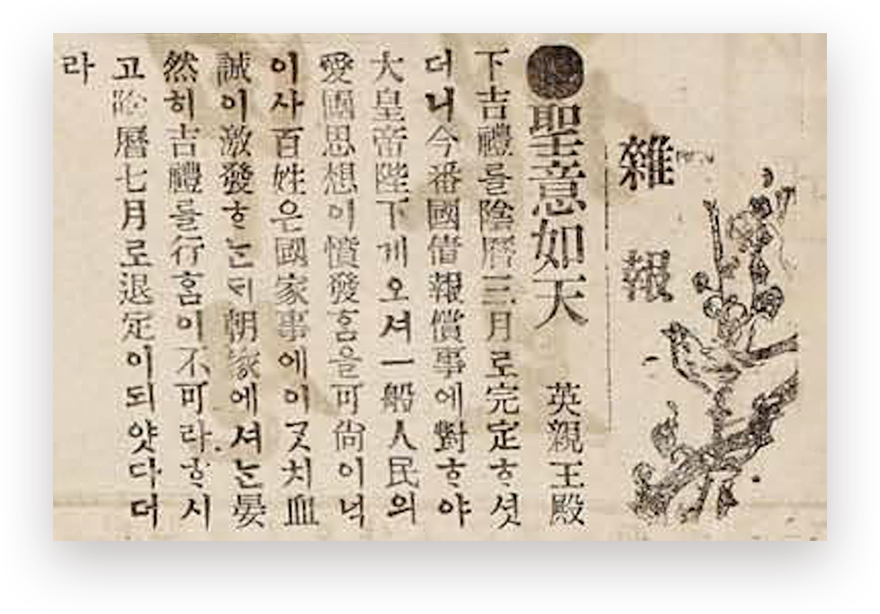 雜報
●聖意如天 英親王殿
下吉禮를陰曆三月로完定ᄒᆞ셧
더니今番國借報償事에對ᄒᆞ야
大皇帝陛下게오셔一船人民의
愛國思想이憤發홈을可尙이넉
이사百姓은國家事에이ᄀᆞᆺ치血
誠이激發ᄒᆞ는ᄃᆡ朝家에셔는晏
然히吉禮를行홈이不可라ᄒᆞ시
고陰曆七月로退定이되얏다더
라